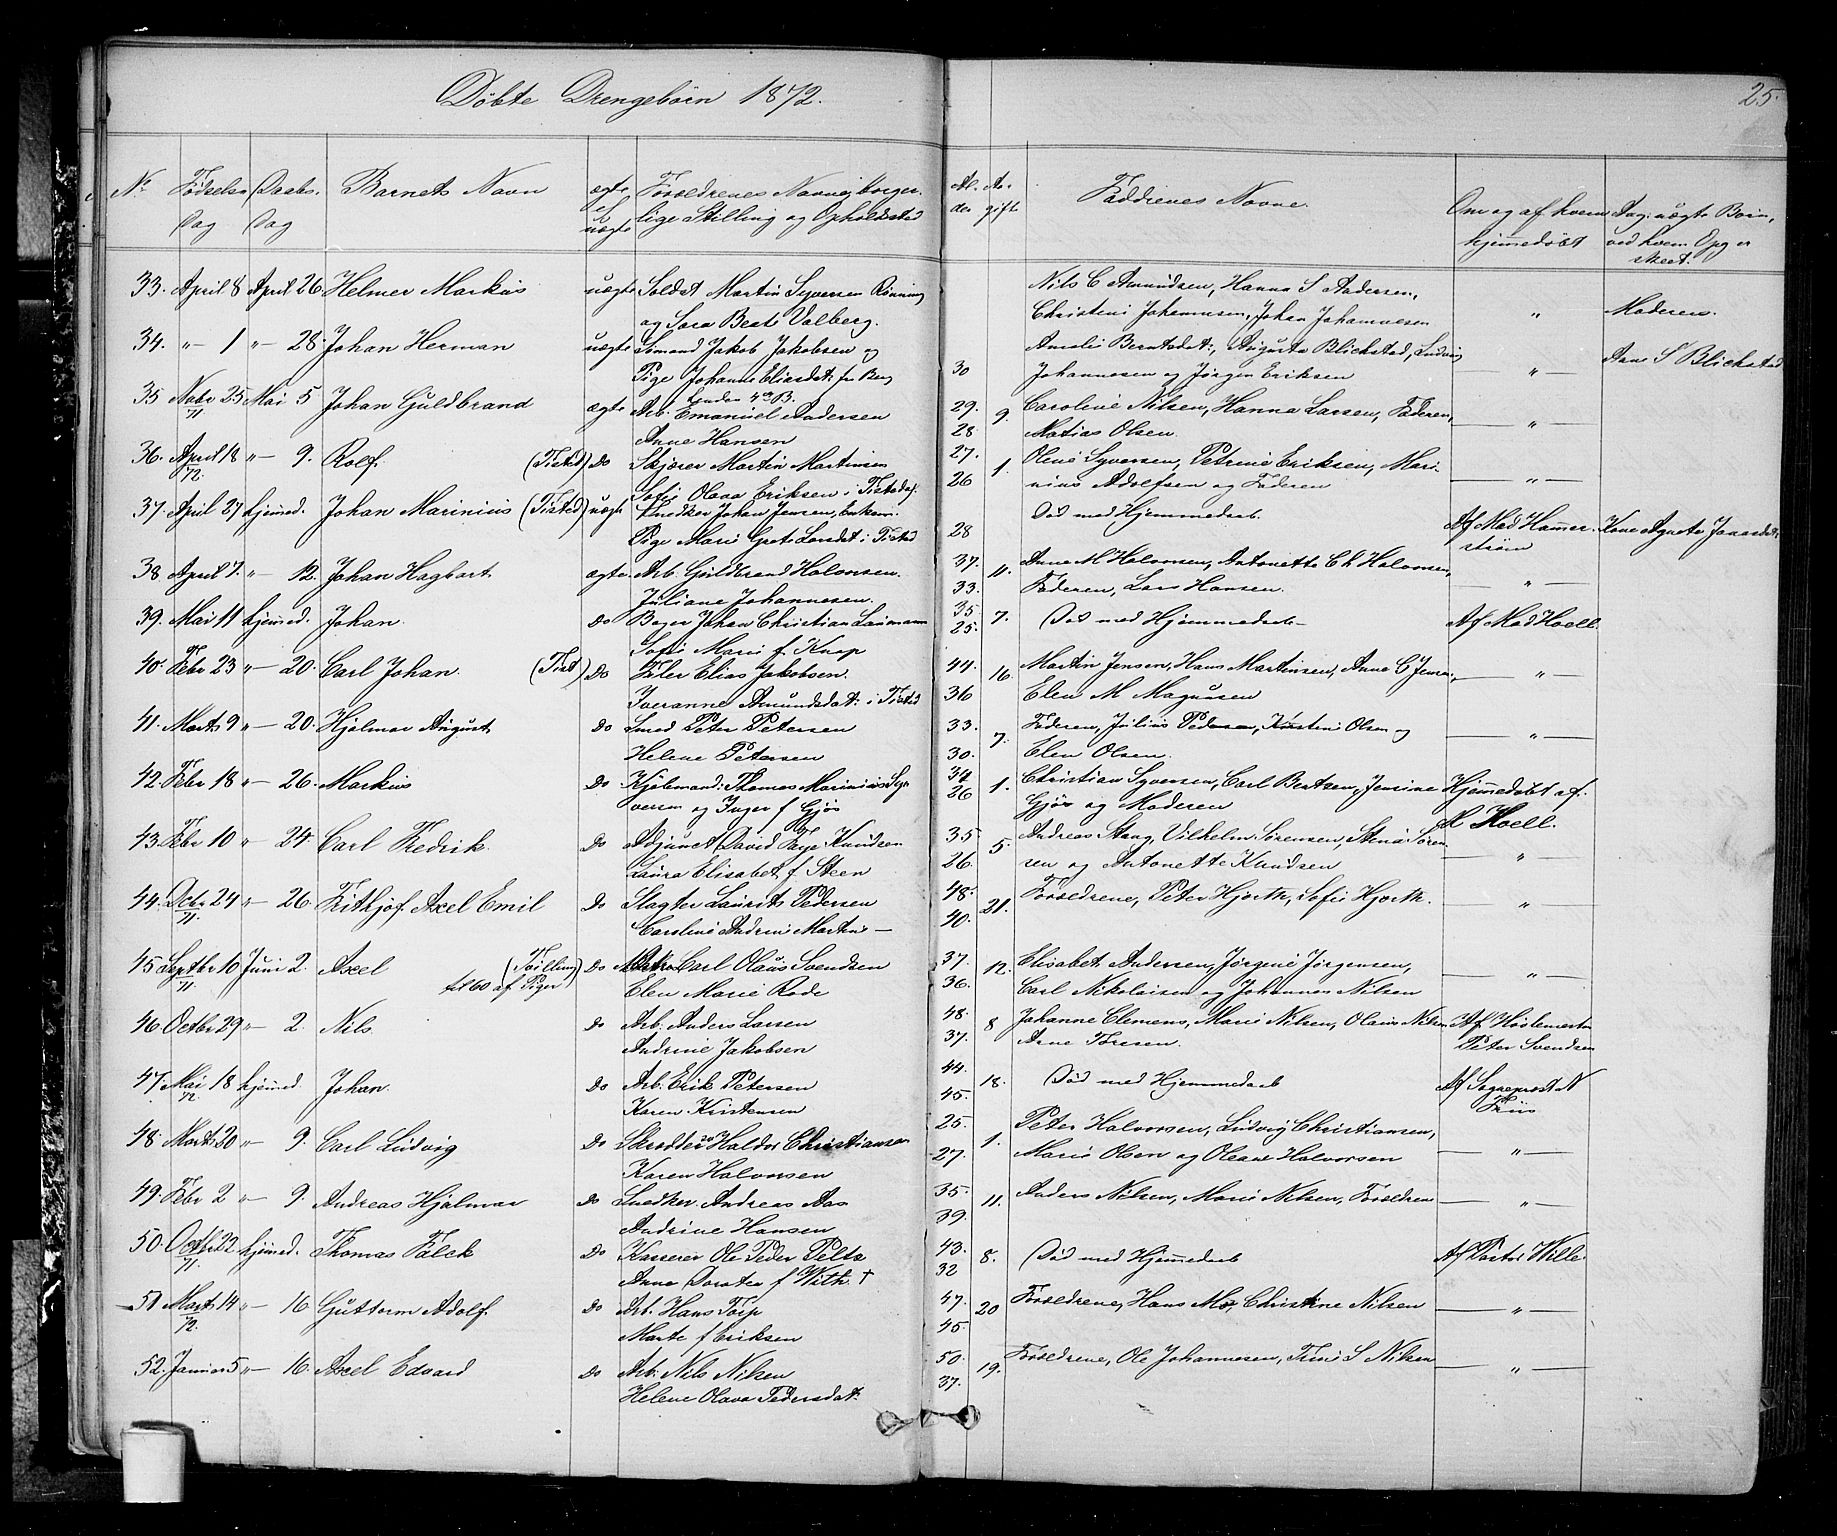 Døbte Drengebørn 1872.
25.
No Fødselsdag Daabsdag Barnets Navn ægte el. uægte Forældrenes Navne, borgerlige Stilling og Opholdssted Alder Gift Faddrenes Navne. Om og af hvem hjemmedøbt Ang: uægte Børn, ved hvem Opg er skeet.
33. April 8 April 26. Helmer Markus uægte Soldat Martin Syversen Rønning Nils C Amundsen, Hanna S Andersen,
og Sara Beate Valberg. Christine Johannesen, Johan Johannesen " Moderen.
34. " 1 " 28. Johan Herman uægte Sømand Jakob Jakobsen og Amalie Berntsdat:, Augusta Blichstad, Ludvig
Pige Johanne Eliasdat: fra Berg 30 Johannesen og Jørgen Eriksen " Ane S Blichstad
35 Nobr 25 71 Mai 5 Johan Guldbrand ægte Arb. Emanuel Andersen 29. 9. Caroline Nilsen, Hanna Larsen, Faderen,
Anne Hansen 28. Matias Olsen. "
36. April 18 72. " 9. Rolf. (Tisted) Do Skjærer Martin Martinsen 27. 1. Oline Syversen, Petrine Eriksen, Mari-
Sofie Olava Eriksen i Tistedal. 26 nius Adolfsen og Faderen "
37. April 27 hjemmed. Johan Marinius (Tisted) uægte Snedker Johan Jensen, enkem. Død med Hjemmedaab. Af Mad Hammer- Kone Agnete Jonasdat:
Pige Marie Grete Larsdat i Tisted 28 strøm
38 April 7. " 12. Johan Hagbart ægte. Arb. Guldbrand Halvorsen. 37. 11. Anne M Halvorsen, Antonette Ch Halvorsen,
Juliane Johannesen. 33. Faderen, Lars Hansen. "
39. Mai 11 hjemmed. Johan. Do Bager Johan Christian Laumann 35. 7. Død med Hjemmedaab Af Mad Hoell.
Sofie Marie f. Knap 25.
40. Febr 23 " 20. Carl Johan. (Tist) Do Føler Elias Jakobsen. 44. 16. Martin Jensen, Hans Martinsen, Anne C Jensen,
Iveranne Amundsdat: i Tisted 36 Elen M Magnusen "
41. Marts 9 " 20. Hjalmar August Do Smed Peter Petersen 33. 7. Faderen, Julius Pedersen, Kirstine Olsen og
Helene Petersen 30. Elen Olsen. "
42. Febr 18 " 26. Markus Do Kjøbmand: Thomas Marinius Sy- 34 1. Christian Syversen, Carl Berntsen, Jensine Hjemmedøbt af.
versen og Inger f Gjøs 26 Gjøs og Moderen R Hoell.
43. Febr 10 " 24. Carl Fredrik. Do Adjunct David Faye Knudsen 35. 5. Andreas Stang, Vilhelm Sørensen, Stina Søren-
Laura Elisabet f. Steen 26. sen og Antonette Knudsen "
44. Octbr 24 71. " 26. Frithjof Axel Emil Do Slagter Laurits Pedersen 48. 21. Forældrene, Peter Hjorth, Sofie Hjorth. "
Caroline Andrine Martin 40.
45 Septbr 10 71. Juni 2. Axel (Tvilling til 60 af Piger) Do Matros Carl Olaus Svendsen 37. 12. Elisabet Andersen, Jørgine Jørgensen,
Elen Marie Rode 36. Carl Nikolaisen og Johannes Nilsen "
46 Octbr 29 " 2. Nils. Do Arb. Anders Larsen 48. 8 Johanne Clemens, Marie Nilsen, Olaus Nilsen Af Høvlemester
Andrine Jakobsen 37. Arne Toresen. Peter Svendsen
47. Mai 18 72. hjemmed. Johan. Do Arb. Erik Petersen 44. 18. Død med Hjemmedaab Af Sogneprest N
Karen Kristensen 45. Friis
48 Marts 20 " 9. Carl Ludvig Do Skrædder Haldor Christiansen 25. 1. Peter Halvorsen, Ludvig Christiansen,
Karen Halvorsen 27. Marie Olsen og Oleane Halvorsen "
49. Febr 2 " 9. Andreas Hjalmar Do Snedker Andreas Aas 35. 11. Anders Nilsen, Marie Nilsen, Forældrene "
Andrine Hansen 39.
50. Octbr 22 71. hjemmed. Thomas Falck Do Kasserer Ole Peder Peltz 43. 8. Død med Hjemmedaab Af Pastor Wille.
Anna Dorotea f With. † 32
51 Marts 14 72. " 16 Guttorm Adolf. Do Arb. Hans Torp 47. 20 Forældrene, Hans Mo, Christine Nilsen "
Marte f Eriksen 45.
52. Januar 5 " 16. Axel Edvard Do Arb. Nils Nilsen 50. 19. Forældrene, Ole Johannesen, Trine S Nilsen "
Helene Olava Pedersdat: 37.